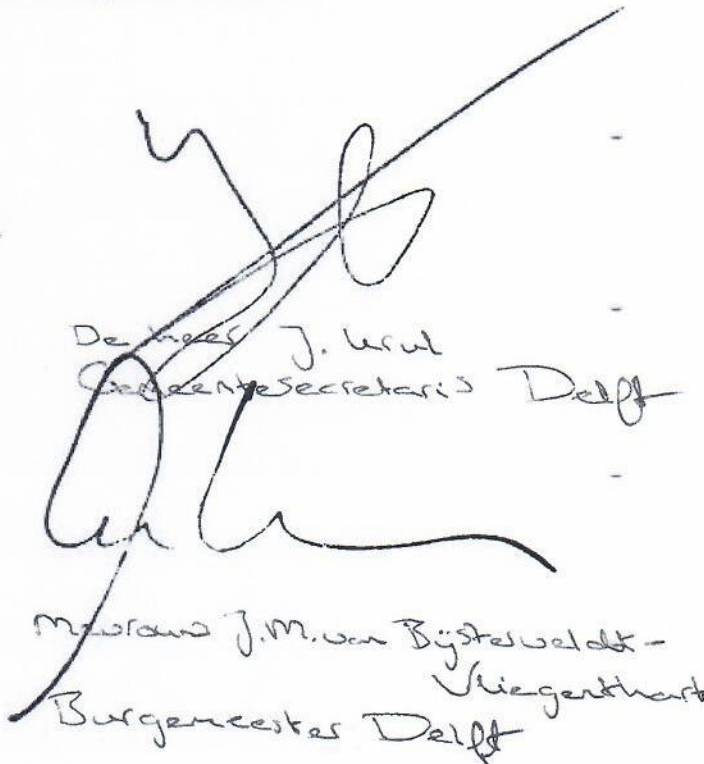 De heer J. Krul
Gemeentesecretaris Delft
Mevrouw J.M. van Bijsterveldt-
Vliegenthart
Burgemeester Delft